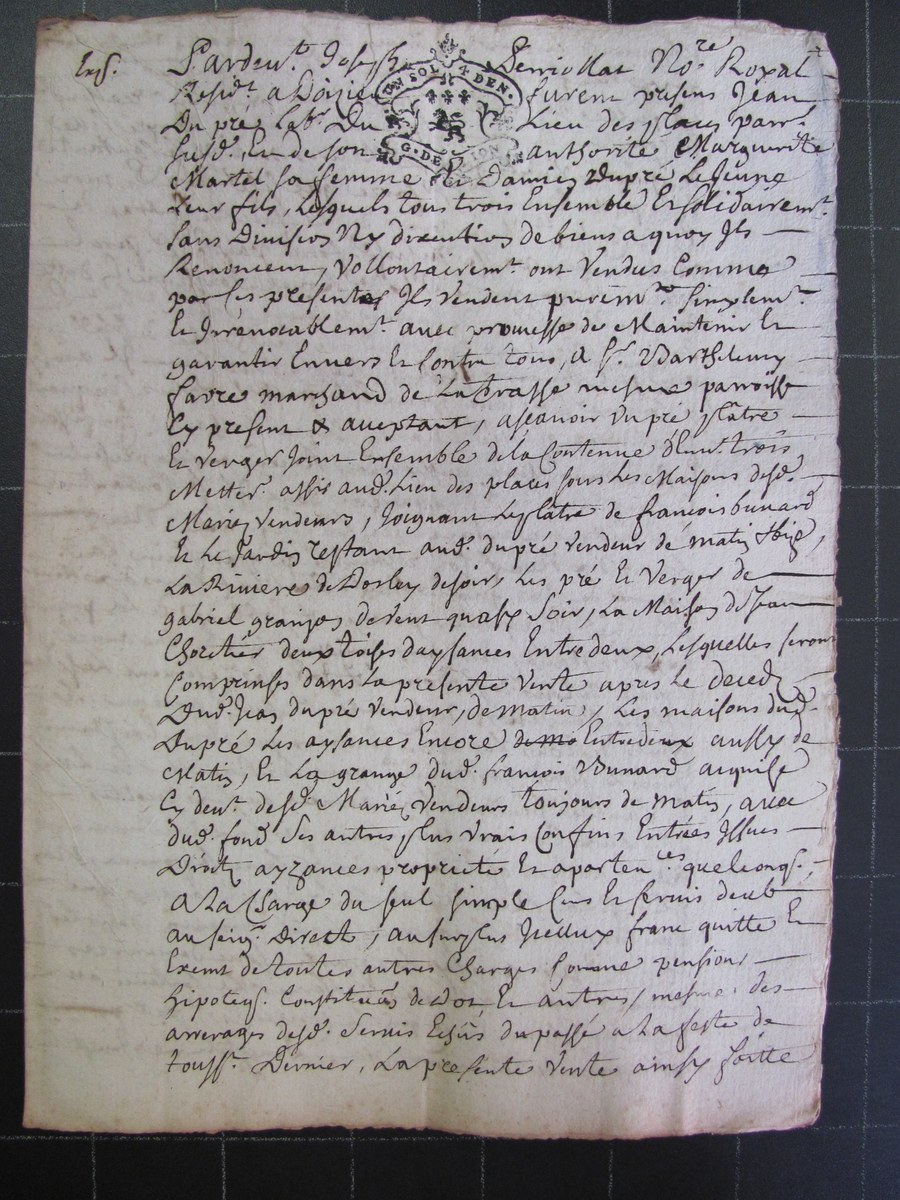 Exp.
Pardevt. Joseph Perriollat Nore Royal
UN SOL 4 DEN.
G. DE LION
Residt. a Doizieu furent presens Jean
Dupré labr. Du Lieu des places parr.
susd. Et de son authorité Marguerite
Martel sa femme Et Damien Dupré Le jeune
Leur fils, Lesquels tous trois Ensemble Et solidairemt.
sans Division Ny discution de biens a quoy Ils
Renoncent, Vollontairemt. ont Vendus Comme
par ses presentes Ils Vendent purémt. simplemt.
Et Irrévocablemt. avec promesse de Maintenir Et
garantir Envers Et Contre tous, A Sr. Barthelemy
favre marchand de La terrasse mesme parroisse
Cy present & acceptant, ascavoir Un pré plâtre
Et Verger Joint Ensemble de la Contenue d'Envt. trois
Metter. assis aud. Lieu des places sous Les Maisons desd.
Mariez Vendeurs, Joignant Le plâtre de françois bunard
Et Le Jardin restant aud. dupré Vendeur de matin & bize,
La Riviere de Dorley de soir, Les pré Et Verger de
gabriel granjon de Vent quasy Soir, La Maison de Jean
Chorétier deux toises daysances Entredeux, Lesquelles seront
Comprinses dans La présente Vente apres Le deced
Dud. Jean dupré Vendeur, de matin, Les maisons dud.
Dupré Les aysances Encore de mo Entredeux aussy de
Matin, Et La grange dud. françois Bunard acquise
Cy devt. desd. Mariez Vendeurs toujours de matin, avec
dud. fond Ses autres plus vrais Confins Entrées Issues
Droits ayzances proprieté Et apartences quelconqs.
A La Charge du seul simple Cens Et servis deub
au seigr. Direct, au surplus Icelluy franc quitte Et
Exemt de toutes autres Charges somme pension,
hipoteqs. Constitués de Dot Et autres, mesme, des
arrerages desd. Servis Echûs du passé a La feste de
tousst. Dernier, La presente Vente ainsy faitte